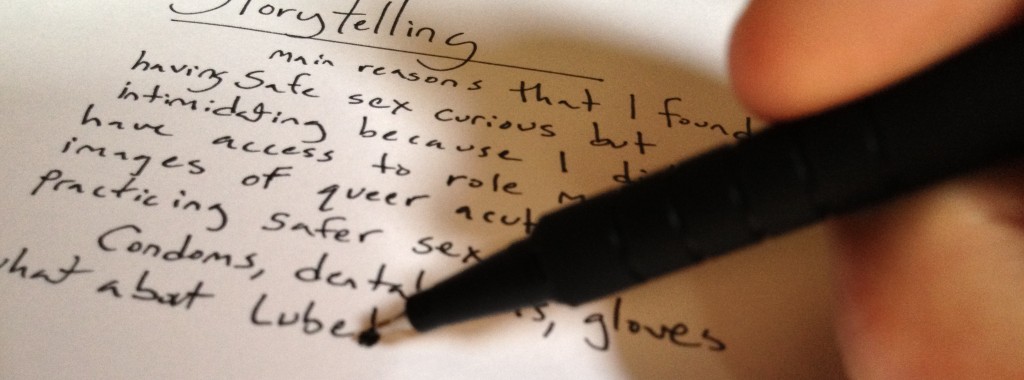 Storytelling
main reasons that I found
having Safe sex curious but
intimidating because I
have access to role
images of queer
Practicing safer sex
Condoms, dental gloves
what about Lube